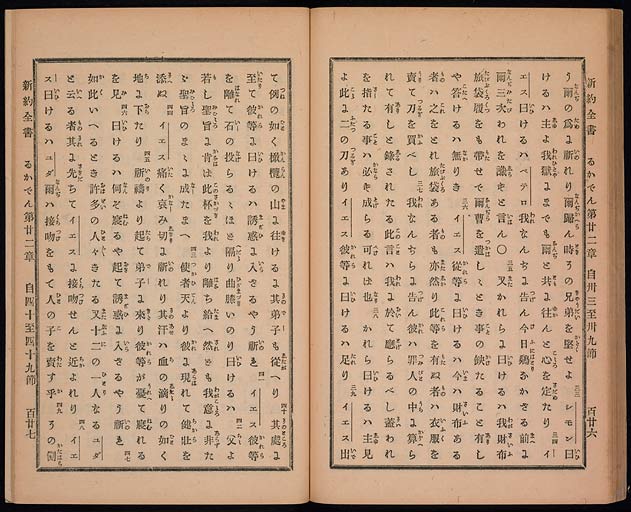 新約全書 るかでん第廿二章 自卅三至卅九節 百廿六
う爾の爲に祈れり爾歸ん時その兄弟を堅せよ 三三 シモン曰
けるハ主よ我獄にまでも爾と共に往んと心を定たり 三四 イ
エス曰けるハペテロ我なんぢに告ん今日鷄なかざる前に
爾三次われを識ずと言ん〇 三五 又かれらに曰けるハ我財布
旅袋履をも帶せで爾曹を遣しゝとき事の缺たること有し
や答けるハ無りき 三六 イエス彼等に曰けるハ今ハ財布ある
者ハこれをとれ旅袋ある者も亦然り此等を有ぬ者ハ衣服を
賣て刀を買べし 三七 我なんぢらに告ん彼ハ罪人の中に算ら
れて有しと録されたる此言ハ我に於て應らるべし蓋われ
を指たる事ハ必ず成らる可れば也 三八 かれら曰けるハ主見
よ此に二の刀ありイエス彼等に曰けるハ足り 三九 イエス出
て例の如く橄欖の山に往けるに其弟子も從へり 四十 其處に
至て彼等に曰けるハ誘惑に入ざるやう祈れ 四一 イエス彼等
を離て石の投らるゝほど隔り曲膝いのり曰けるハ 四二 父よ
若し聖旨に肯ば此杯を我より離ち給へ然ども我意に非た
ゞ聖旨のまゝに成たまへ 四三 使者天より彼に現れて健壯を
添ぬ 四四 イエス痛く哀み切に祈れり其汗ハ血の滴りの如く
地に下たり 四五 祈禱より起て弟子に來り彼等が憂て寢れる
を見 四六 曰けるハ何ぞ寢るや起て誘惑に入ざるやう祈れ 四七
如此いへるとき許多の人々きたる又十二の一人なるユダ
と云る者其に先ちてイエスに接吻せんと近よれり 四八 イエ
ス曰けるハユダ爾ハ接吻をもて人の子を賣す乎 四九 その側
新約全書 るかでん第廿二章 自四十至四十九節 百廿七